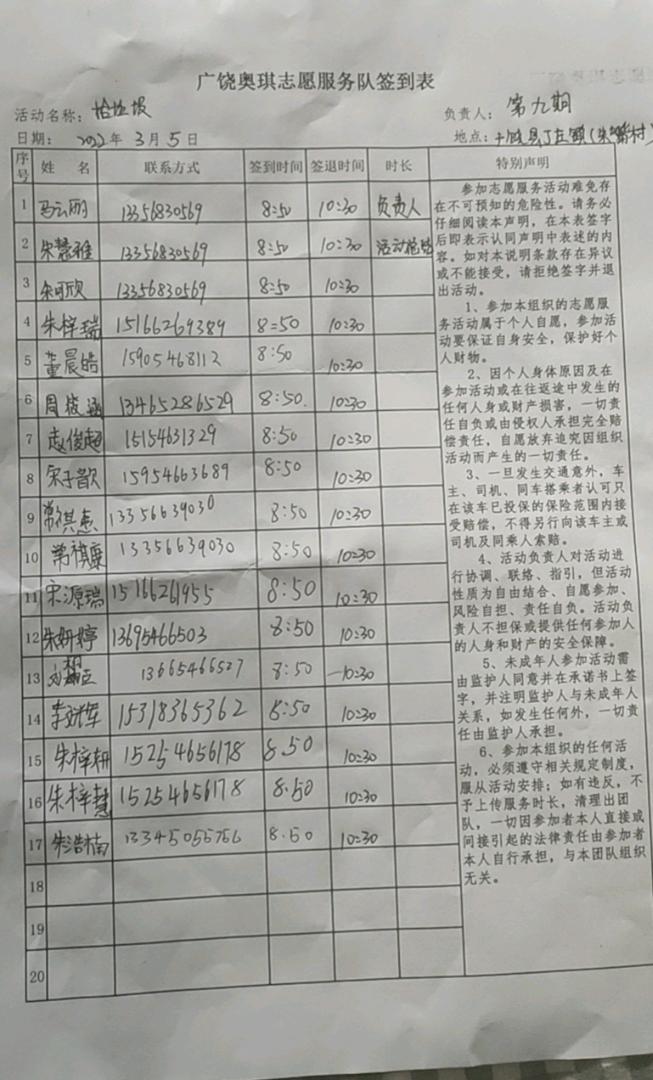 广饶奥琪志愿服务队签到表
活动名称：捡垃圾
负责人：第九期
日期：2022年3月5日
地点：丁庄镇(朱 村)
序号 姓 名 联系方式 签到时间 签退时间 时长 特别声明
1 马云丽 13356830569 8:50 10:30 负责人
2 朱慧雅 13356830569 8:50 10:30 活动
3 朱可欣 13356830569 8:50 10:30
4 朱梓瑞 15166269389 8:50 10:30
5 董晨皓 15905468112 8:50 10:30
6 周 涵 13465286529 8:50. 10:30
7 赵俊超 15154631329 8:50 10:30
8 宋子歆 15954663689 8:50 10:30
9 常祺 13356639030 8:50 10:30
10 常祺 13356639030 8:50 10:30
11 宋源瑞 15166261955 8:50 10:30
12 朱妍婷 13695466503 8:50 10:30
13 13665466527 8:50 10:30
14 李 军 15318365362 8:50 10:30
15 朱梓妍 15254656178 8.50 10:30
16 朱梓慧 15254656178 8.50 10:30
17 朱浩楠 13345055766 8.50 10:30
18
19
20
参加志愿服务活动难免存
在不可预知的危险性。请务必
仔细阅读本声明，在本表签字
后即表示认同声明中表述的内
容。如对本说明条款存在异议
或不能接受，请拒绝签字并退
出活动。
1、参加本组织的志愿服
务活动属于个人自愿，参加活
动要保证自身安全，保护好个
人财物。
2、因个人身体原因及在
参加活动或在往返途中发生的
任何人身或财产损害，一切责
任自负或由侵权人承担完全赔
偿责任，自愿放弃追究因组织
活动而产生的一切责任。
3、一旦发生交通意外，车
主、司机、同车搭乘者认可只
在该车已投保的保险范围内接
受赔偿，不得另行向该车主或
司机及同乘人索赔。
4、活动负责人对活动进
行协调、联络、指引，但活动
性质为自由结合、自愿参加、
风险自担、责任自负。活动负
责人不担保或提供任何参加人
的人身和财产的安全保障。
5、未成年人参加活动需
由监护人同意并在承诺书上签
字，并注明监护人与未成年人
关系，如发生任何外，一切责
任由监护人承担。
6、参加本组织的任何活
动，必须遵守相关规定制度，
服从活动安排；如有违反，不
予上传服务时长，清理出团
队，一切因参加者本人直接或
间接引起的法律责任由参加者
本人自行承担，与本团队组织
无关。